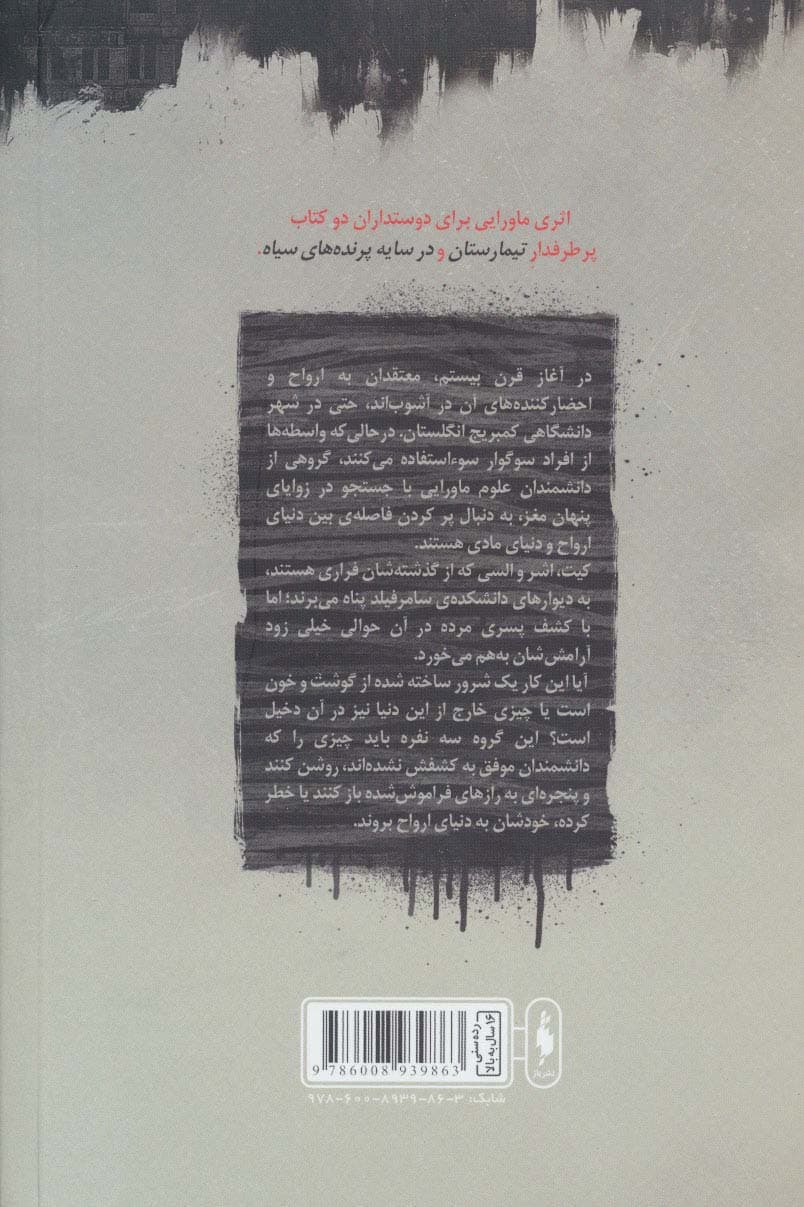 اثری ماورایی برای دوستداران دو کتاب
پرطرفدارِ تیمارستان و در سایه پرنده‌های سیاه.
در آغاز قرن بیستم، معتقدان به ارواح و
احضارکننده‌های آن در آشوب‌اند، حتی در شهر
دانشگاهی کمبریج انگلستان. درحالی‌که واسطه‌ها
از افراد سوگوار سوءاستفاده می‌کنند، گروهی از
دانشمندان علوم ماورایی با جستجو در زوایای
پنهان مغز، به دنبال پر کردن فاصله‌ی بین دنیای
ارواح و دنیای مادی هستند.
کیت، اشر و السی که از گذشته‌شان فراری هستند،
به دیوارهای دانشکده‌ی سامرفیلد پناه می‌برند؛ اما
با کشف پسری مرده در آن حوالی خیلی زود
آرامش‌شان به‌هم می‌خورد.
آیا این کار یک شرور ساخته شده از گوشت و خون
است یا چیزی خارج از این دنیا نیز در آن دخیل
است؟ این گروه سه نفره باید چیزی را که
دانشمندان موفق به کشفش نشده‌اند، روشن کنند
و پنجره‌ای به رازهای فراموش‌شده باز کنند یا خطر
کرده، خودشان به دنیای ارواح بروند.
رده‌سنی
۱۶ سال به بالا
نشر باژ
9 786008 939863
شابک: ۳-۸۶-۸۹۳۹-۶۰۰-۹۷۸